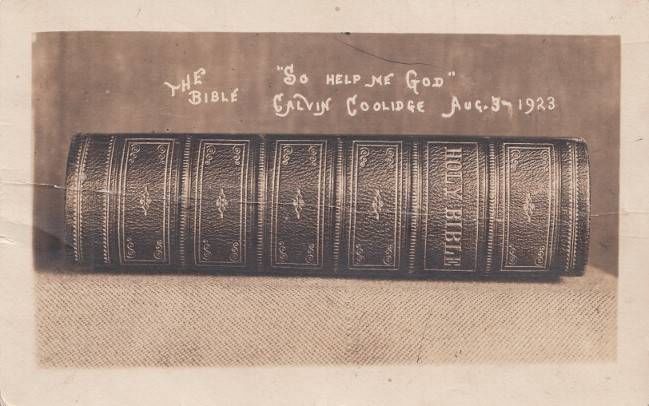 THE
BIBLE
"SO HELP ME GOD"
CALVIN COOLIDGE AUG. 3- 1923
HOLY BIBLE